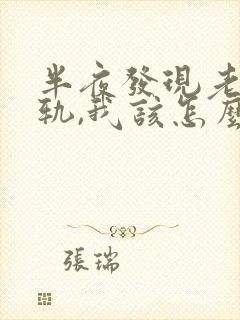 半夜發現老
軌,我該怎麼
張瑞